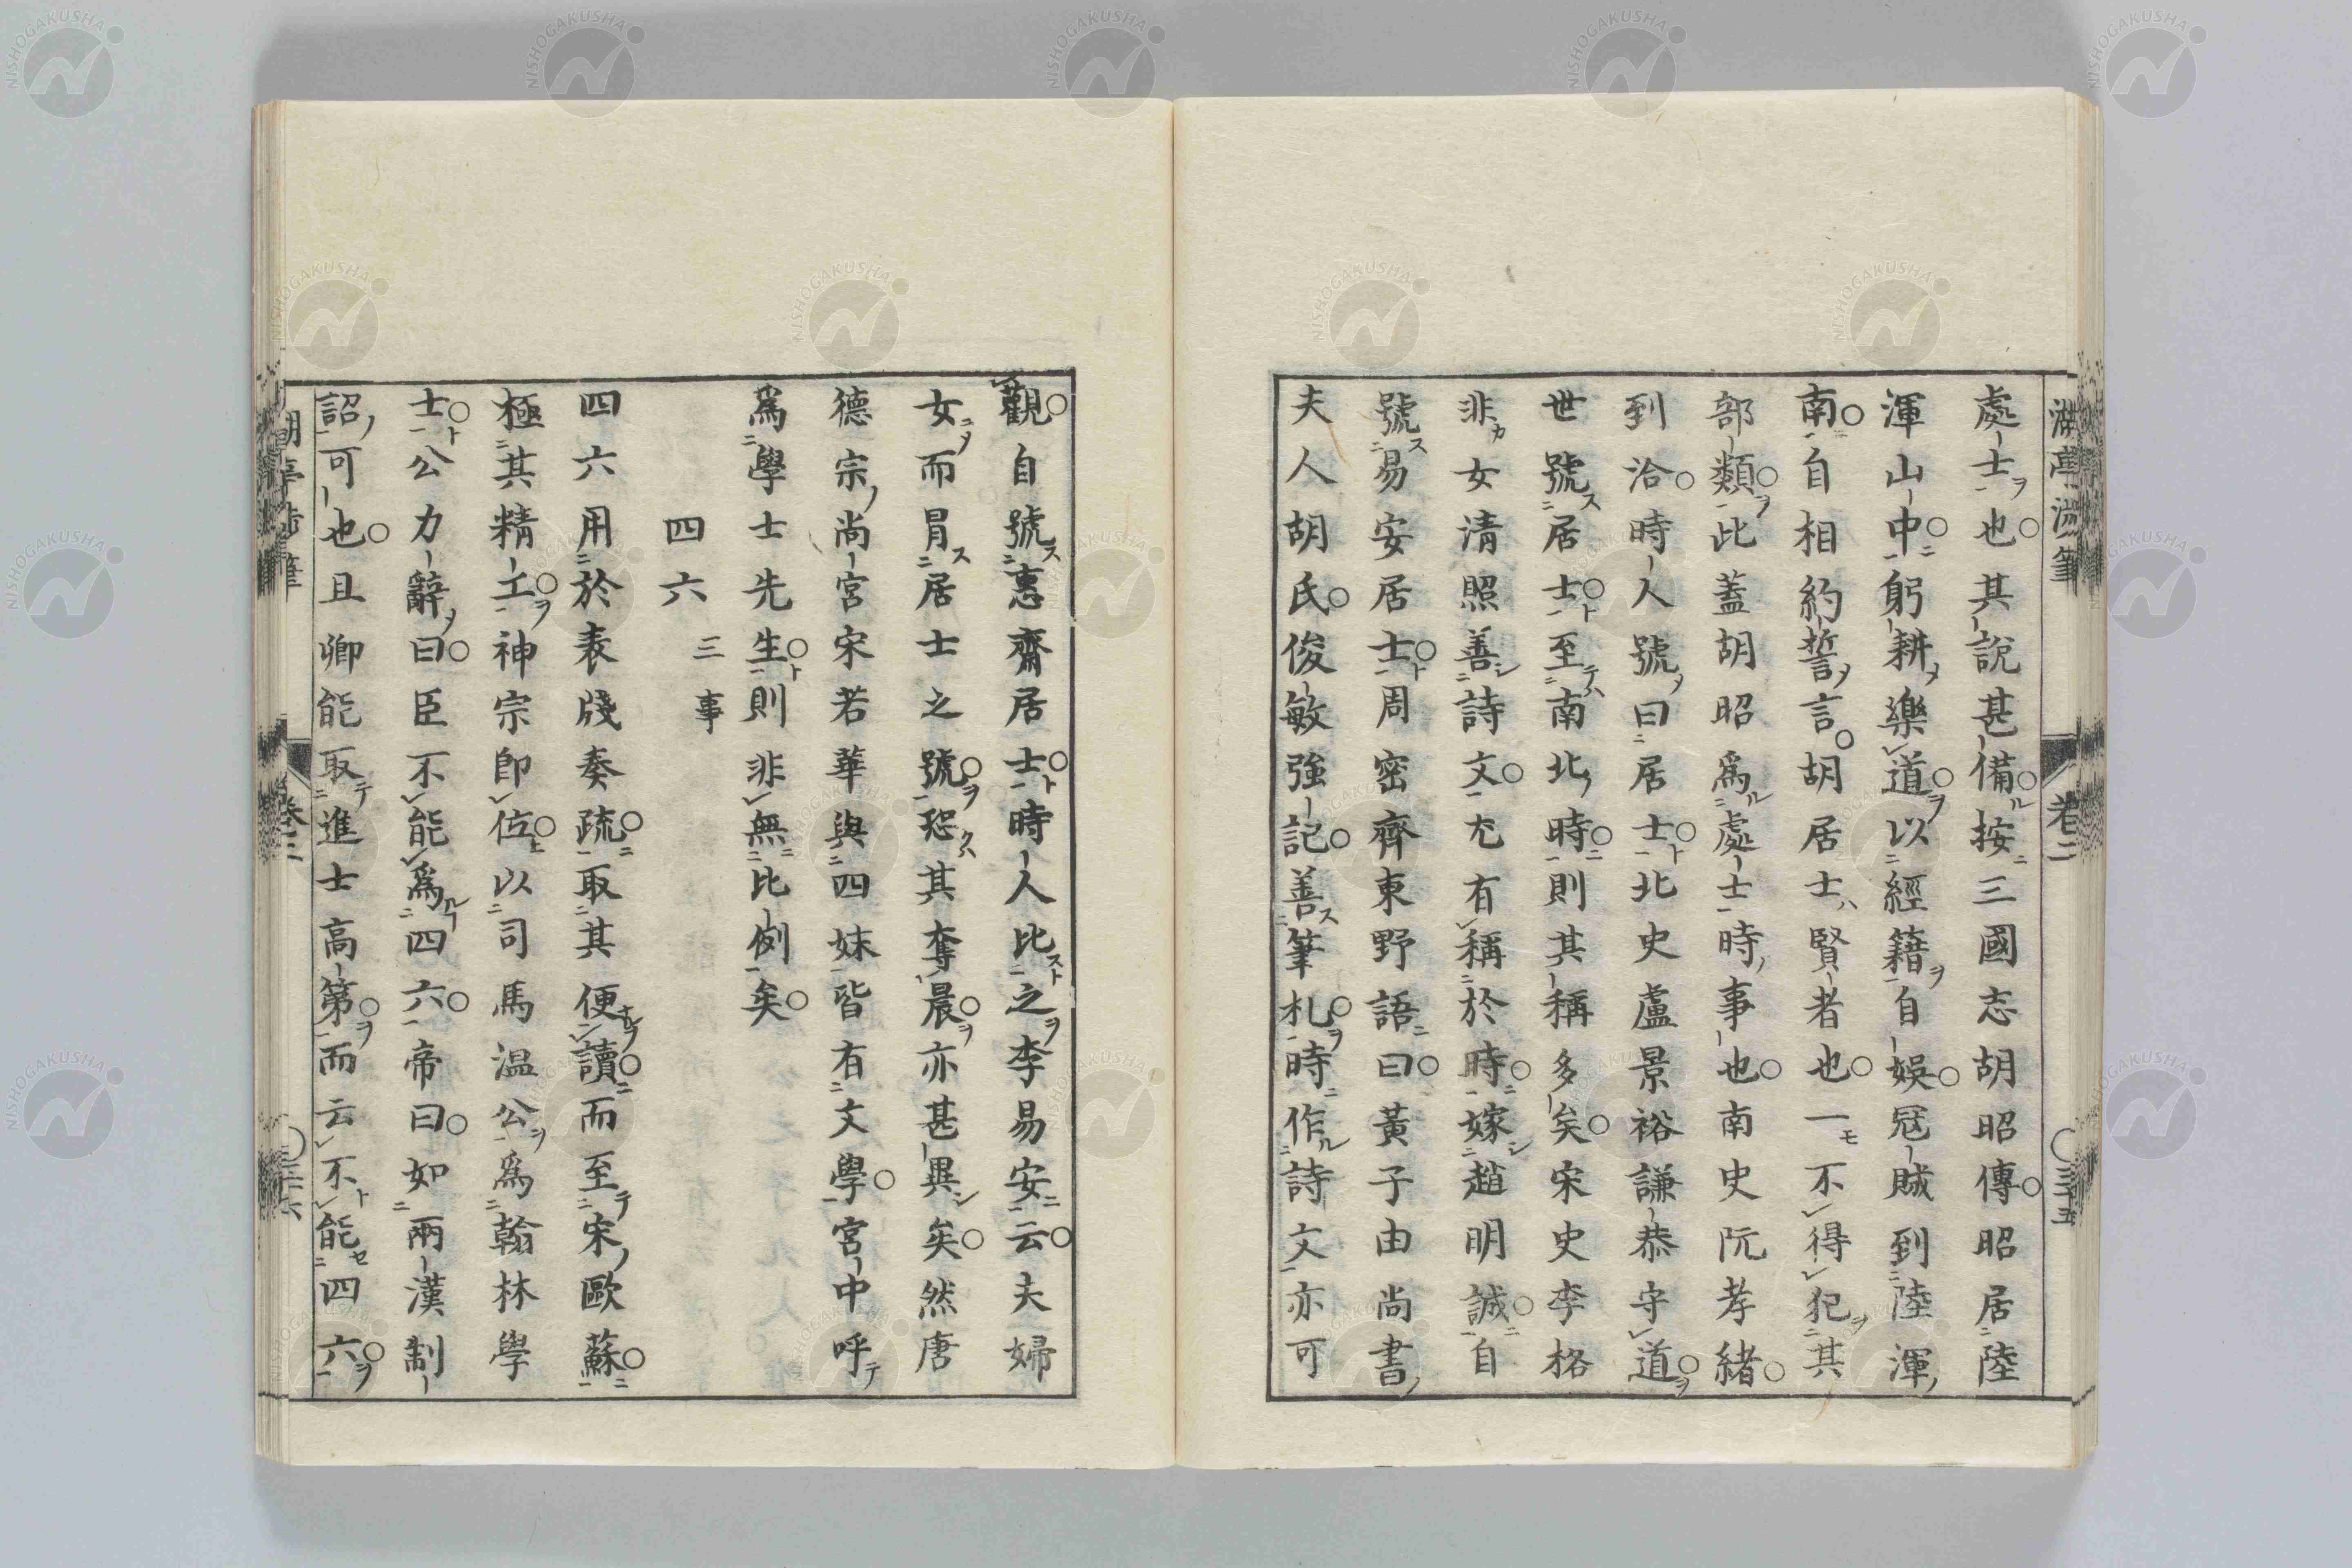 處士也其說甚備按三國志胡昭傳昭居陸
渾山中躬耕樂道以經籍自娯冦賊到陸渾
南自相約誓言胡居士賢者也一不得犯其
部類此蓋胡昭爲處士時事也南史阮孝緒
到洽時人號曰居士北史盧景裕謙恭守道
世號居士至南北時則其稱多矣宋史李格
非女清照善詩文尤有稱於時嫁趙明誠自
號易安居士周密齊東野語曰黃子由尚書
夫人胡氏俊敏強記善筆札時作詩文亦可
卷二
觀自號惠齋居士時人比之李易安云夫婦
女而冐居士之號恐其奪晨亦甚異矣然唐
德宗尚宮宋若華與四妹皆有文學宮中呼
爲學士先生則非無比例矣
四六 三事
四六用於表牋奏疏取其便讀而至宋歐蘇
極其精工神宗即位以司馬温公爲翰林學
士公力辭曰臣不能爲四六帝曰如兩漢制
詔可也且卿能取進士高第而云不能四六
NISHOGAKUSHA